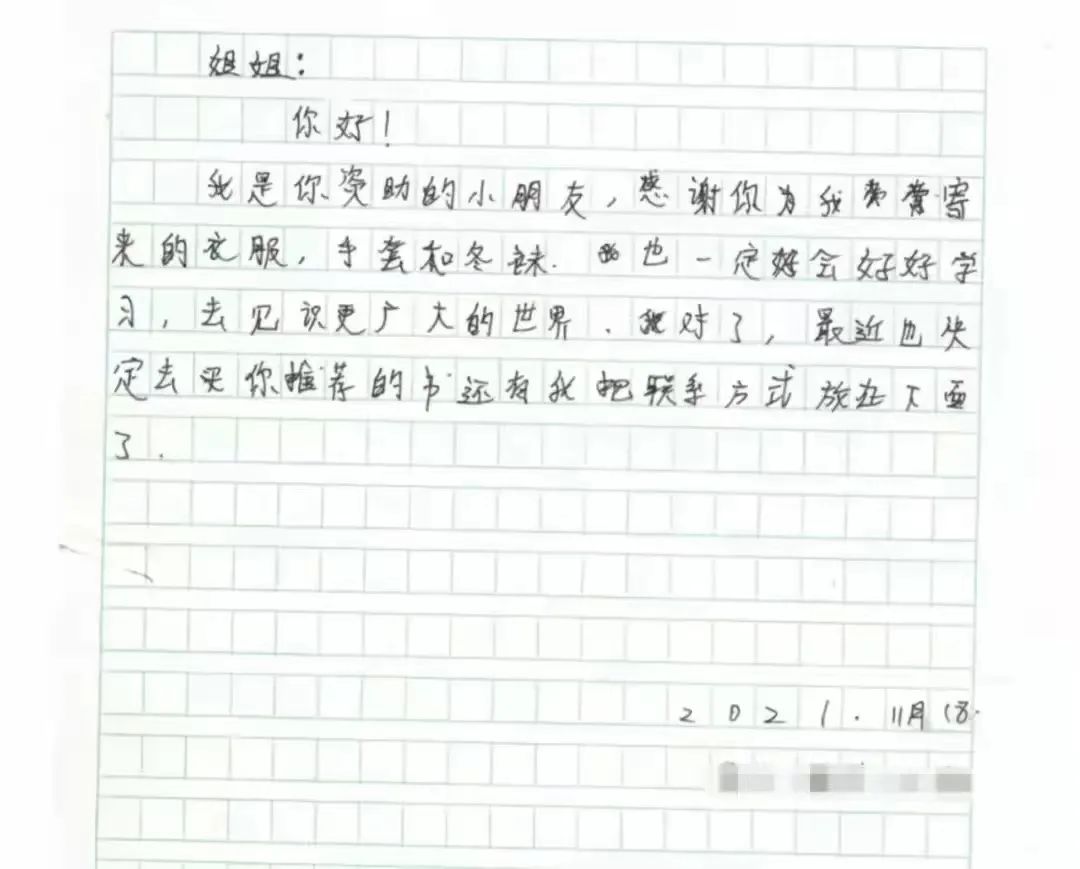 姐姐：
你好！
我是你资助的小朋友，感谢你为我常常寄
来的衣服，手套和冬袜．我也一定好会好好学
习，去见识更广大的世界．我对了，最近也决
定去买你推荐的书还有我把联系方式放在下面
了．
2021．11月18．